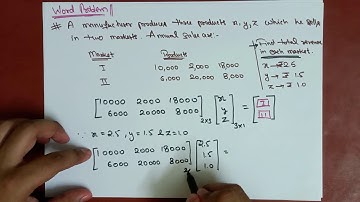 Word Problem //
# A manufacturer produces three products x, y, z which he sells
in two markets. Annual sale are:-
Market Products
I 10,000 2,000 18,000
II 6,000 20,000 8,000
→ Find total revenue
in each market.
x → ₹ 2.5
y → ₹ 1.5
z → ₹ 1.0
[10000 2000 18000
6000 20000 8000] 2×3 [x
y
z] 3×1 = [I
II]
∵ x = 2.5, y = 1.5 & z = 1.0
[10000 2000 18000
6000 20000 8000] [2.5
1.5
1.0] =